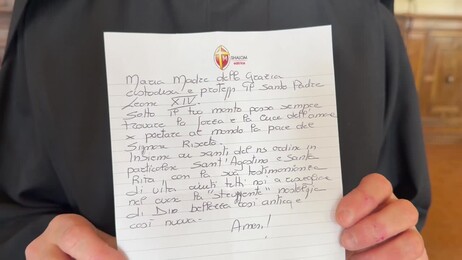 SHALOM
Maria Madre della Grazia
custodisci e proteggi il santo Padre
Leone XIV.
Sotto il tuo manto possa sempre
trovare la forza e la luce dell'amore
x portare al mondo la pace del
Signore Risorto.
Insieme ai santi del ns ordine in
particolare Sant'Agostino e Santa
Rita con la sua testimonianza
di vita aiuti tutti noi a
nel cuore la "struggente" nostalgia
di Dio bellezza così antica e
così nuova.
Amen!